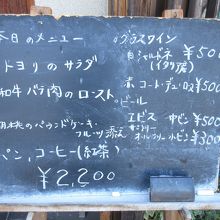 本日のメニュー
ドヨリのサラダ
和牛バラ肉のロースト
桃のパウンドケーキ
フルーツ添え
パン、コーヒー(紅茶)
¥2,200
グラスワイン
白 シャルドネ ¥500
(イタリア産)
赤 コート・デュ・ロヌ ¥500
ビール
エビス 中ビン ¥500
サントリー
オールフリー 小ビン ¥300